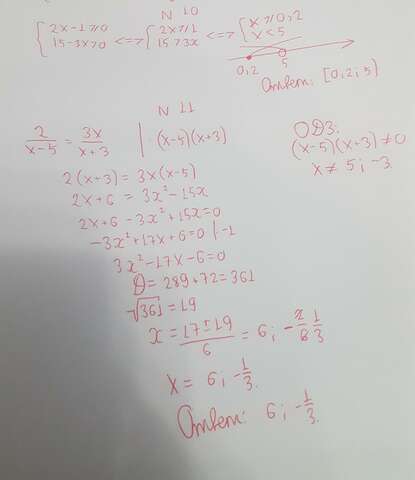 N 10
{2x-1⩾0 15-3x>0 <=> {2x⩾1 15>3x <=> {x⩾0,2 x<5
0,2 5
Ответ: [0,2; 5)
N 11
2/(x-5) = 3x/(x+3) | · (x-5)(x+3)
ОДЗ:
(x-5)(x+3)≠0
x≠5; -3
2(x+3) = 3x(x-5)
2x+6 = 3x²-15x
2x+6-3x²+15x=0
-3x²+17x+6=0 |-1
3x²-17x-6=0
D = 289+72=361
√361 = 19
x = (17±19)/6 = 6; -2/6 1/3
x = 6; -1/3.
Ответ: 6; -1/3.